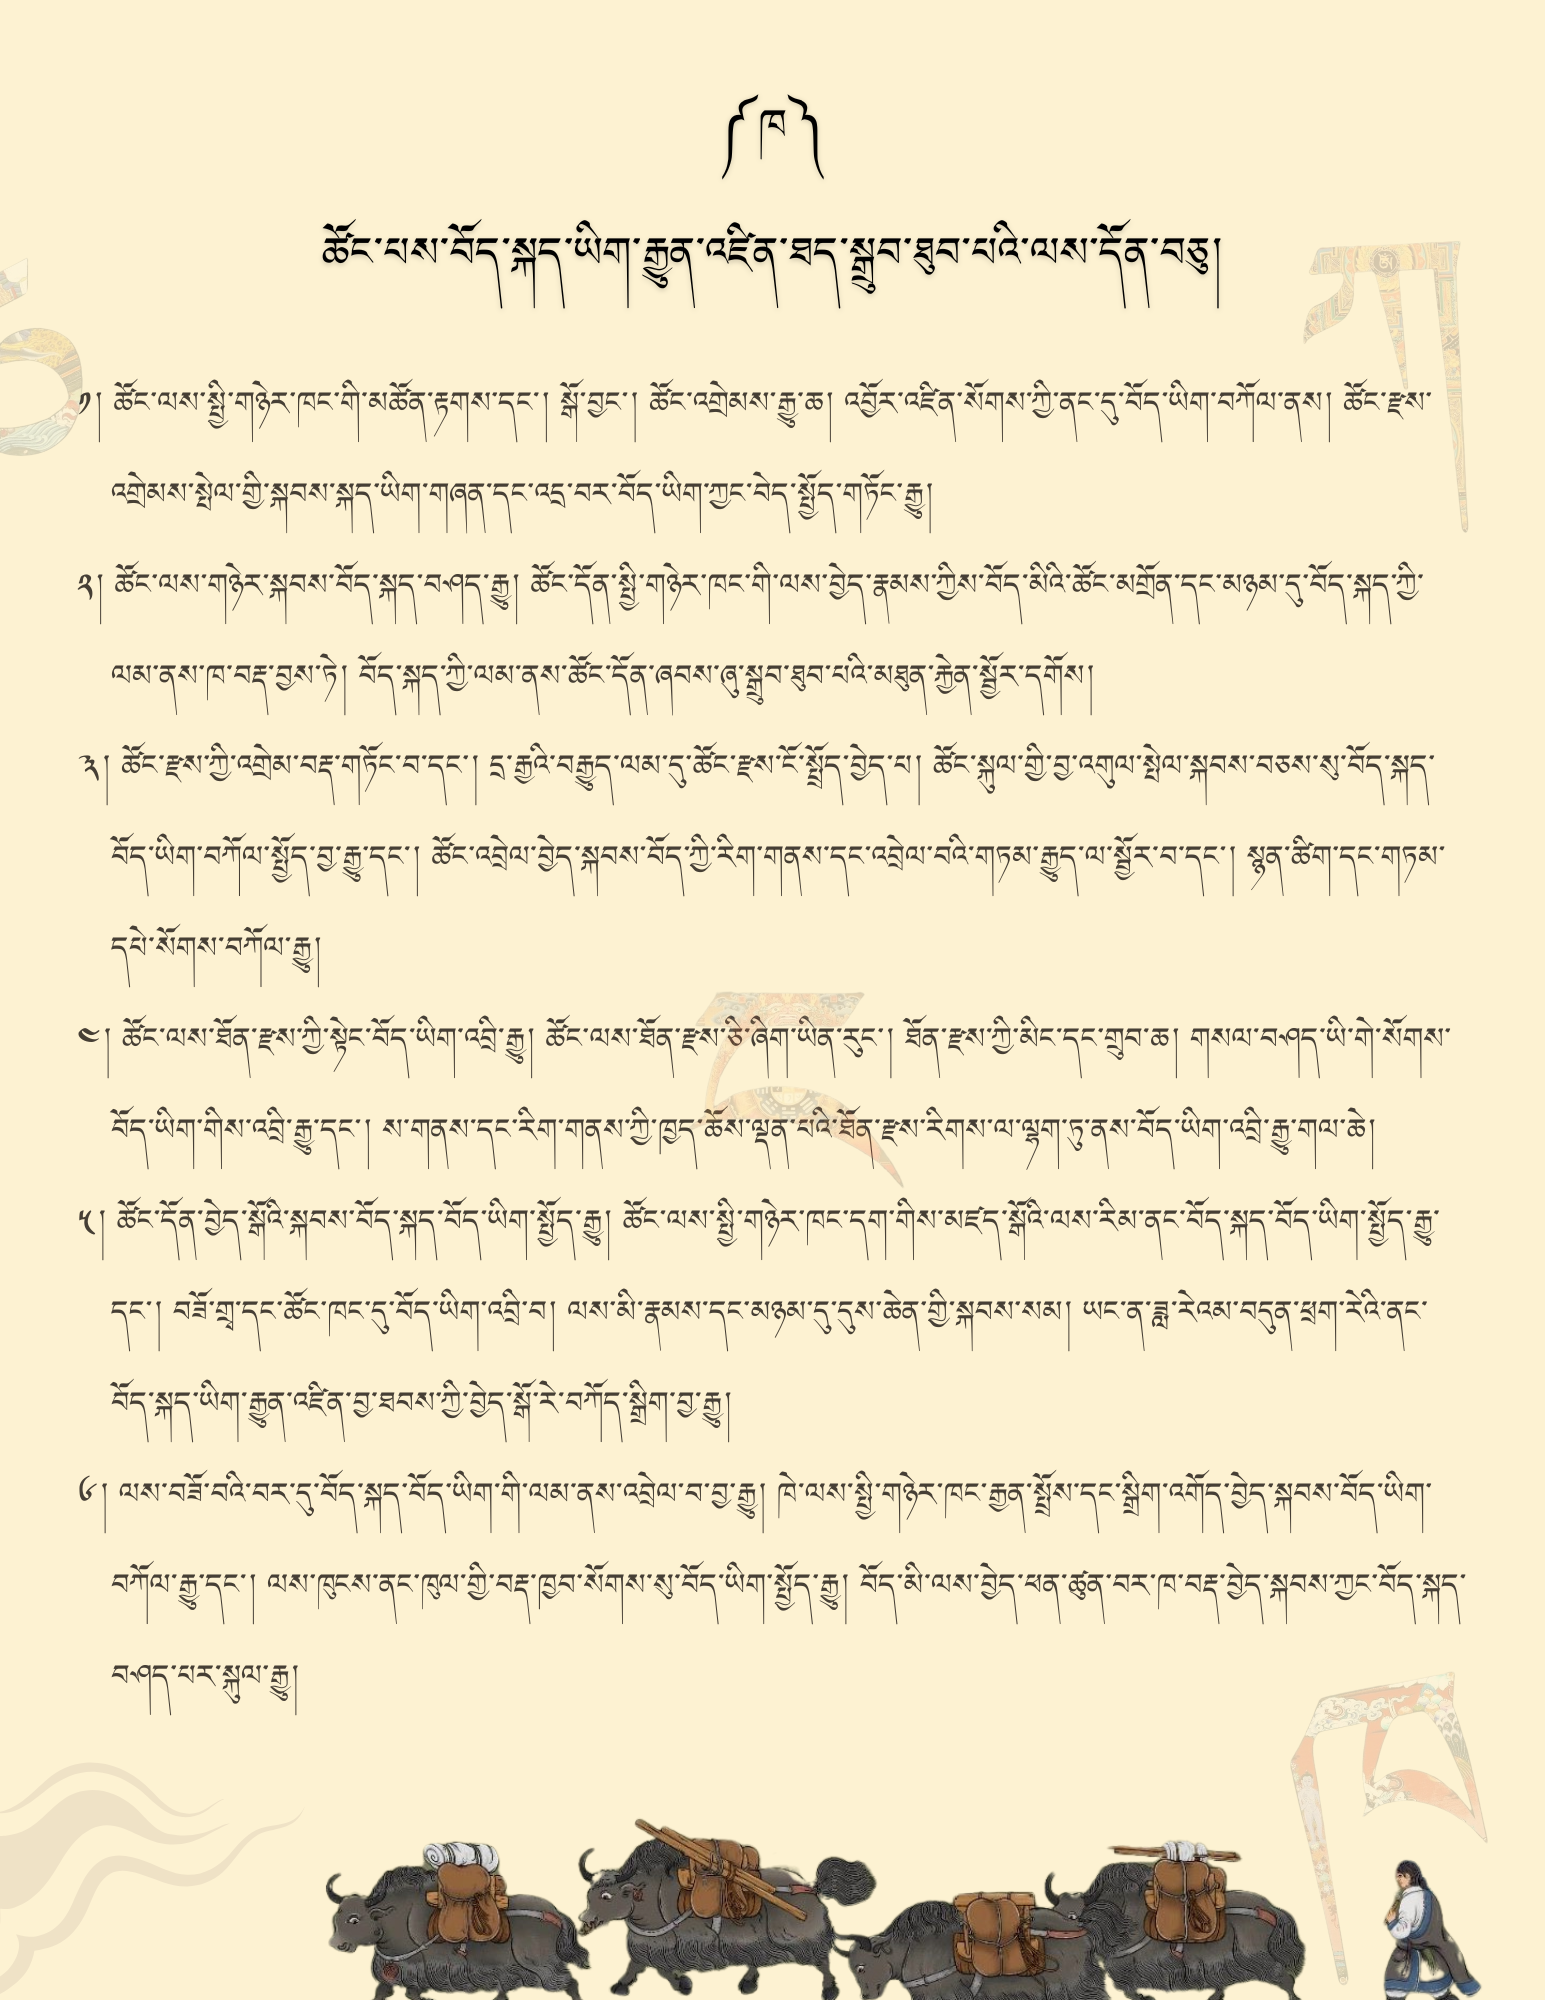 ༼ ཁ ༽
ཚོང་པས་བོད་སྐད་ཡིག་རྒྱུན་འཛིན་ཐད་སྒྲུབ་ཐུབ་པའི་ལས་དོན་བཅུ།
༡། ཚོང་ལས་སྤྱི་གཉེར་ཁང་གི་མཚོན་རྟགས་དང་། སྒོ་བྱང་། ཚོང་འགྲེམས་རྒྱུ་ཆ། འབྱོར་འཛིན་སོགས་ཀྱི་ནང་དུ་བོད་ཡིག་བཀོལ་ནས། ཚོང་རྫས་
འགྲེམས་སྤེལ་གྱི་སྐབས་སྐད་ཡིག་གཞན་དང་འདྲ་བར་བོད་ཡིག་ཀྱང་བེད་སྤྱོད་གཏོང་རྒྱུ།
༢། ཚོང་ལས་གཉེར་སྐབས་བོད་སྐད་བཤད་རྒྱུ། ཚོང་དོན་སྤྱི་གཉེར་ཁང་གི་ལས་བྱེད་རྣམས་ཀྱིས་བོད་མིའི་ཚོང་མགྲོན་དང་མཉམ་དུ་བོད་སྐད་ཀྱི་
ལམ་ནས་ཁ་བརྡ་བྱས་ཏེ། བོད་སྐད་ཀྱི་ལམ་ནས་ཚོང་དོན་ཞབས་ཞུ་སྒྲུབ་ཐུབ་པའི་མཐུན་རྐྱེན་སྦྱོར་དགོས།
༣། ཚོང་རྫས་ཀྱི་འགྲེམ་བརྡ་གཏོང་བ་དང་། དྲ་རྒྱའི་བརྒྱུད་ལམ་དུ་ཚོང་རྫས་ངོ་སྤྲོད་བྱེད་པ། ཚོང་སྐུལ་གྱི་བྱ་འགུལ་སྤེལ་སྐབས་བཅས་སུ་བོད་སྐད་
བོད་ཡིག་བཀོལ་སྤྱོད་བྱ་རྒྱུ་དང་། ཚོང་འབྲེལ་བྱེད་སྐབས་བོད་ཀྱི་རིག་གནས་དང་འབྲེལ་བའི་གཏམ་རྒྱུད་ལ་སྦྱོར་བ་དང་། སྙན་ཚིག་དང་གཏམ་
དཔེ་སོགས་བཀོལ་རྒྱུ།
༤། ཚོང་ལས་ཐོན་རྫས་ཀྱི་སྟེང་བོད་ཡིག་འབྲི་རྒྱུ། ཚོང་ལས་ཐོན་རྫས་ཅི་ཞིག་ཡིན་རུང་། ཐོན་རྫས་ཀྱི་མིང་དང་གྲུབ་ཆ། གསལ་བཤད་ཡི་གེ་སོགས་
བོད་ཡིག་གིས་འབྲི་རྒྱུ་དང་། ས་གནས་དང་རིག་གནས་ཀྱི་ཁྱད་ཆོས་ལྡན་པའི་ཐོན་རྫས་རིགས་ལ་ལྷག་ཏུ་ནས་བོད་ཡིག་འབྲི་རྒྱུ་གལ་ཆེ།
༥། ཚོང་དོན་བྱེད་སྒོའི་སྐབས་བོད་སྐད་བོད་ཡིག་སྤྱོད་རྒྱུ། ཚོང་ལས་སྤྱི་གཉེར་ཁང་དག་གིས་མཛད་སྒོའི་ལས་རིམ་ནང་བོད་སྐད་བོད་ཡིག་སྤྱོད་རྒྱུ་
དང་། བཟོ་གྲྭ་དང་ཚོང་ཁང་དུ་བོད་ཡིག་འབྲི་བ། ལས་མི་རྣམས་དང་མཉམ་དུ་དུས་ཆེན་གྱི་སྐབས་སམ། ཡང་ན་ཟླ་རེའམ་བདུན་ཕྲག་རེའི་ནང་
བོད་སྐད་ཡིག་རྒྱུན་འཛིན་བྱ་ཐབས་ཀྱི་བྱེད་སྒོ་རེ་བཀོད་སྒྲིག་བྱ་རྒྱུ།
༦། ལས་བཟོ་བའི་བར་དུ་བོད་སྐད་བོད་ཡིག་གི་ལམ་ནས་འབྲེལ་བ་བྱ་རྒྱུ། ཁེ་ལས་སྤྱི་གཉེར་ཁང་རྒྱན་སྤྲོས་དང་སྒྲིག་འགོད་བྱེད་སྐབས་བོད་ཡིག་
བཀོལ་རྒྱུ་དང་། ལས་ཁུངས་ནང་ཁུལ་གྱི་བརྡ་ཁྱབ་སོགས་སུ་བོད་ཡིག་སྤྱོད་རྒྱུ། བོད་མི་ལས་བྱེད་ཕན་ཚུན་བར་ཁ་བརྡ་བྱེད་སྐབས་ཀྱང་བོད་སྐད་
བཤད་པར་སྐུལ་རྒྱུ།